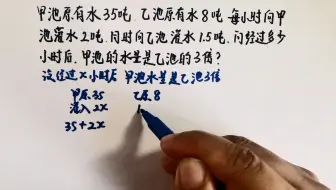 甲池原有水35吨，乙池原有水8吨，每小时向甲
池灌水2吨，同时向乙池灌水1.5吨，问经过多少
小时后，甲池的水量是乙池的3倍？
设经过x小时后 甲池水量是乙池3倍
甲原35 乙原8
灌入2x
35+2x